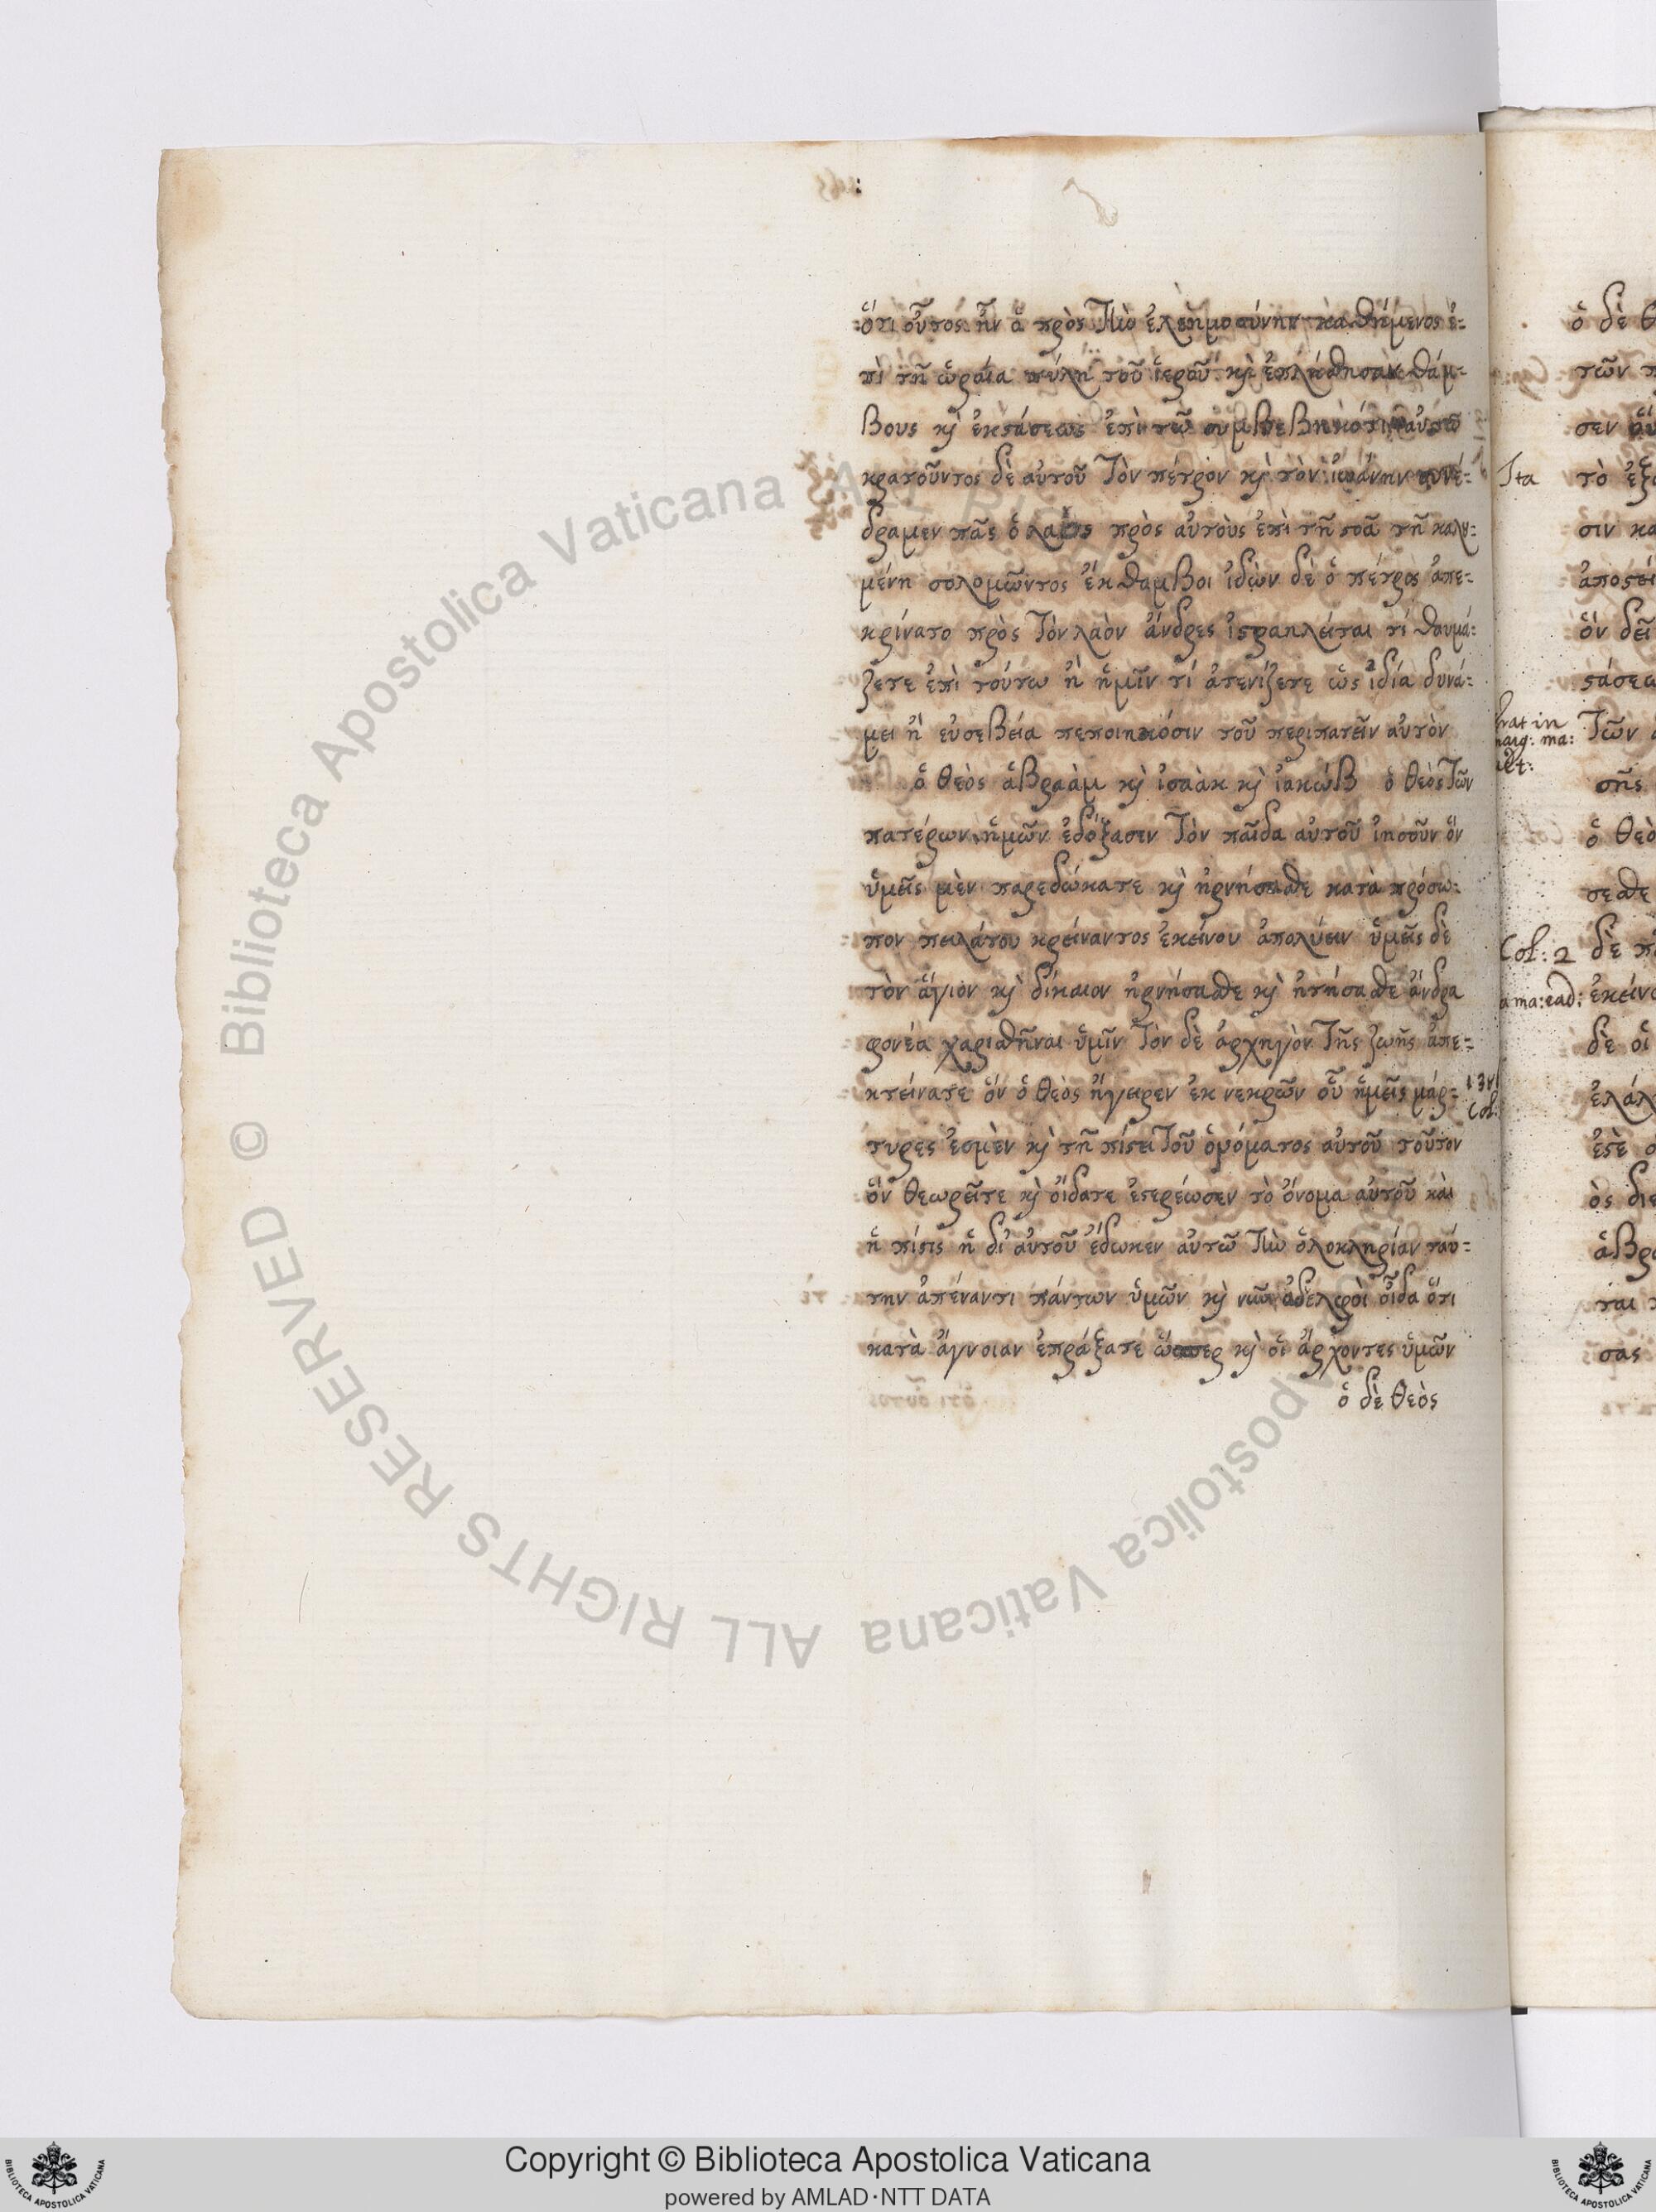 ὅτι οὗτος ἦν ὁ πρὸς τὴν ἐλεημοσύνην καθήμενος ἐ=
πὶ τῆ ὡραία πύλη τοῦ ἱεροῦ κỳ ἐπλήσθησαν θάμ=
βους κỳ ἐκϛάσεως ἐπὶ τῶ συμβεβηκότι αὐτῶ
κρατοῦντος δὲ αὐτοῦ τὸν πέτρον κỳ τὸν ἰωάνην συνέ=
δραμεν πᾶς ὁ λαὸς πρὸς αὐτοὺς ἐπὶ τῆ ϛοᾶ τῆ καλȣ=
μένη σολομῶντος ἔκθαμβοι ἰδὼν δὲ ὁ πέτρος ἀπε=
κρίνατο πρὸς τὸν λαὸν ἄνδρες ἰσραηλεῖται τί θαυμά=
ζετε ἐπὶ τούτω ἢ ἡμῖν τί ἀτενίζετε ὡς ἰδία δυνά=
μει ἢ εὐσεβεία πεποιηκόσιν τοῦ περιπατεῖν αὐτὸν
ὁ θεὸς ἀβραὰμ κỳ ἰσαὰκ κỳ ἰακώβ ὁ θεὸς τῶν
πατέρων ἡμῶν ἐδόξασεν τὸν παῖδα αὐτοῦ ἰησοῦν ὅν
ὑμεῖς μὲν παρεδώκατε κỳ ἠρνήσασθε κατὰ πρόσω=
πον πειλάτου κρείναντος ἐκείνου ἀπολύειν ὑμεῖς δὲ
τὸν ἅγιον κỳ δίκαιον ἠρνήσασθε κỳ ἠτήσασθε ἄνδρα
φονέα χαρισθῆναι ὑμῖν τὸν δὲ ἀρχηγὸν τῆς ζωῆς ἀπε=
κτείνατε ὅν ὁ θεὸς ἤγειρεν ἐκ νεκρῶν οὗ ἡμεῖς μάρ=
τυρες ἐσμὲν κỳ τῆ πίϛει τοῦ ὀνόματος αὐτοῦ τοῦτον
ὅν θεωρεῖτε κỳ οἴδατε ἐϛερέωσεν τὸ ὄνομα αὐτοῦ καὶ
ἡ πίϛις ἡ δι' αὐτοῦ ἔδωκεν αὐτῶ τὴν ὁλοκληρίαν ταύ=
την ἀπέναντι πάντων ὑμῶν κỳ νῦν ἀδελφοὶ οἶδα ὅτι
κατὰ ἄγνοιαν ἐπράξατε ὥσπερ κỳ οἱ ἄρχοντες ὑμῶν
ὁ δὲ θεὸς
ὁ δὲ θ
τῶν π
σεν
Ita τὸ ἐξ
σιν κα
ἀποϛεί
ὅν δεῖ
ϛάσεω
τῶν
σῆς
ὁ θεὸ
σεσθε
Col: 2 δὲ π
a ma: ead: ἐκείν
δὲ οἱ
ἐλάλ
ἐϛὲ
ὃς διε
ἀβρ
ται
σας
© Biblioteca Apostolica Vaticana ALL RIGHTS RESERVED
Copyright © Biblioteca Apostolica Vaticana
powered by AMLAD·NTT DATA
BIBLIOTECA APOSTOLICA VATICANA
BIBLIOTECA APOSTOLICA VATICANA